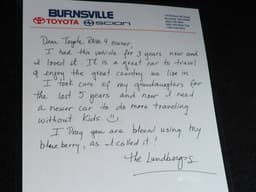 BURNSVILLE
TOYOTA SCION
Dear Toyota RAV 4 owner,
I had this vehicle for 3 years now and
I loved it. It is a great car to travel
& enjoy the great country we live in.
I took care of my granddaughters for
the last 5 years and now I need
a newer car to do more traveling
without kids ☺!
I Pray you are blessed using my
blueberry, as I called it!
The Lundbergs